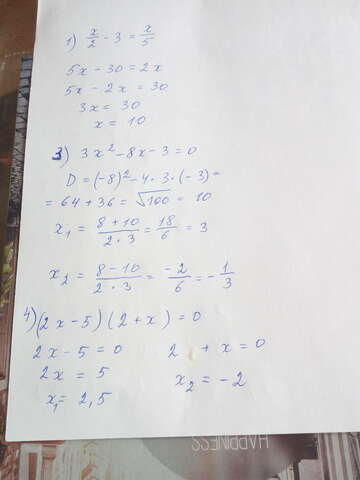 1) x/2 - 3 = x/5
5x - 30 = 2x
5x - 2x = 30
3x = 30
x = 10
3) 3x² - 8x - 3 = 0
D = (-8)² - 4 · 3 · (-3) =
= 64 + 36 = √100 = 10
x₁ = (8 + 10)/(2 · 3) = 18/6 = 3
x₂ = (8 - 10)/(2 · 3) = -2/6 = -1/3
4) (2x - 5)(2 + x) = 0
2x - 5 = 0 2 + x = 0
2x = 5 x₂ = -2
x₁ = 2,5
HAPPINESS